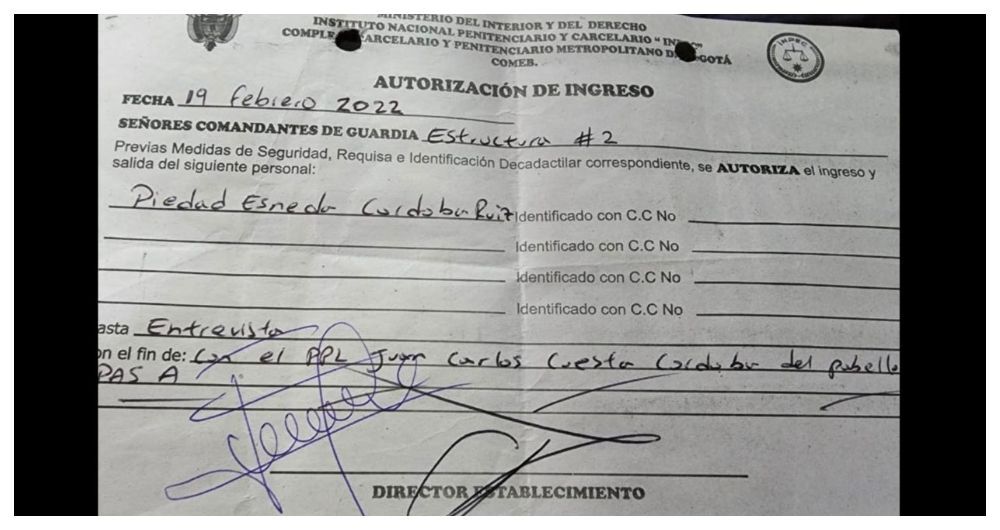 MINISTERIO DEL INTERIOR Y DEL DERECHO
INSTITUTO NACIONAL PENITENCIARIO Y CARCELARIO "
CARCELARIO Y PENITENCIARIO METROPOLITANO
COMEB.
INPEC
AUTORIZACIÓN DE INGRESO
FECHA 19 febrero 2022
SEÑORES COMANDANTES DE GUARDIA Estructura #2
Previas Medidas de Seguridad, Requisa e Identificación Decadactilar correspondiente, se AUTORIZA el ingreso y
salida del siguiente personal:
Piedad Esneda Cordoba Ruiz Identificado con C.C No
Identificado con C.C No
Identificado con C.C No
Identificado con C.C No
asta Entrevista
on el fin de: Con el PPL Juan Carlos Cuesta Cordoba del pabello
PAS A
DIRECTOR ESTABLECIMIENTO